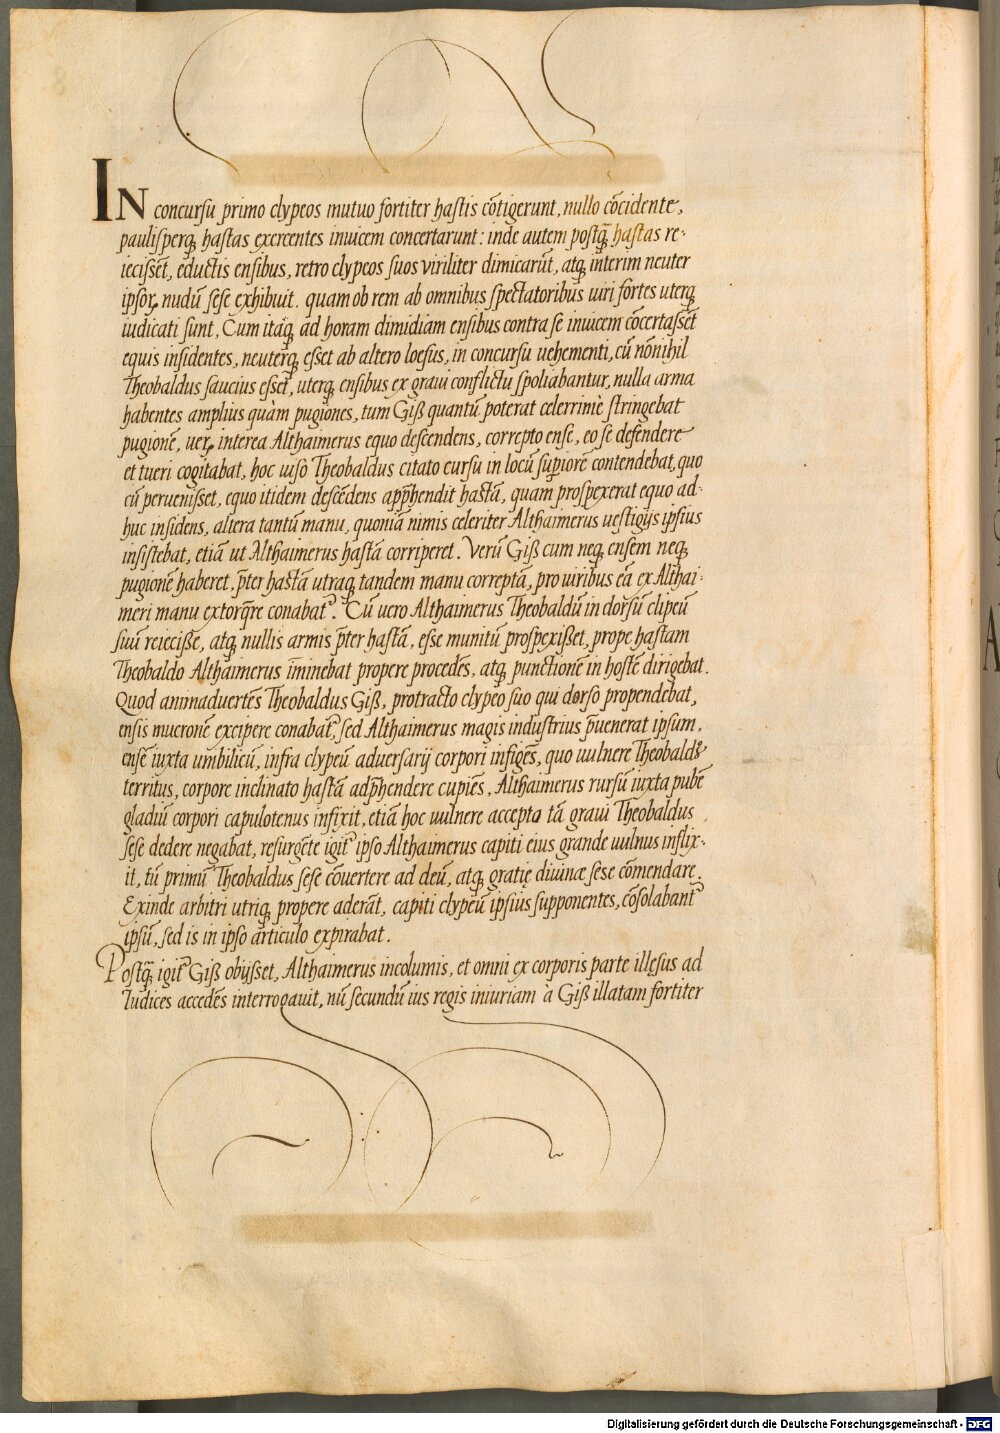 IN concursu primo clypeos mutuo fortiter hastis cōtigerunt, nullo cōcidente,
paulisperq; hastas exercentes inuicem concertarunt: inde autem postq̄ hastas re-
iecissēt, eductis ensibus, retro clypeos suos viriliter dimicarūt, atq; interim neuter
ipsoꝝ nudū sese exhibuit. quam ob rem ab omnibus spectatoribus uiri fortes uterq;
iudicati sunt, Cum itaq; ad horam dimidiam ensibus contra se inuicem cōcertassēt
equis insidentes, neuterq; esset ab altero loesus, in concursu uehementi, cū nōnihil
Theobaldus saucius esset, uterq; ensibus ex graui conflictu spoliabantur, nulla arma
habentes amplius quàm pugiones, tum Giß quantū poterat celerrimè stringebat
pugionē, ueꝝ interea Althaimerus equo descendens, correpto ense, eo se defendere
et tueri cogitabat, hoc uiso Theobaldus citato cursu in locū superiorē contendebat, quo
cū peruenisset, equo itidem descēdens app̄hendit hastā, quam prospexerat equo ad-
huc insidens, altera tantū manu, quoniā nimis celeriter Althaimerus uestigijs ipsius
insistebat, etiā ut Althaimerus hastā corriperet. Verū Giß cum neq; ensem neq;
pugionē haberet, p̄ter hastā utraq; tandem manu correptā, pro uiribus eā ex Althai-
meri manu extorq̄re conabatᷣ. Cū uero Althaimerus Theobaldū in dorsū clipeū
suū reiecisse, atq; nullis armis p̄ter hastā, esse munitū prospexißet, prope hastam
Theobaldo Althaimerus īminebat propere procedēs, atq; punctionē in hostē dirigebat.
Quod animaduertēs Theobaldus Giß, protracto clypeo suo qui dorso propendebat,
ensis mucronē excipere conabatᷣ, sed Althaimerus magis industrius p̄uenerat ipsum,
ensē iuxta umbilicū, infra clypeū aduersarij corpori infigēs, quo uulnere Theobaldꝰ
territus, corpore inclinato hastā adp̄hendere cupiēs, Althaimerus rursū iuxta pubē
gladiū corpori capulotenus infixit, etiā hoc uulnere accepto tā graui Theobaldus
sese dedere negabat, resurgēte igitᷣ ipso Althaimerus capiti eius grande uulnus inflix-
it, tū primū Theobaldus sese cōuertere ad deū, atq; gratię diuinæ sese cōmendare.
Exinde arbitri utriq; propere aderāt, capiti clypeū ipsius supponentes, cōsolabantᷣ
ipsū, sed is in ipso articulo expirabat.
Postq̄ igitᷣ Giß obijsset, Althaimerus incolumis, et omni ex corporis parte illęsus ad
Iudices accedēs interrogauit, nū secundū ius regis iniuriam à Giß illatam fortiter
Digitalisierung gefördert durch die Deutsche Forschungsgemeinschaft - DFG